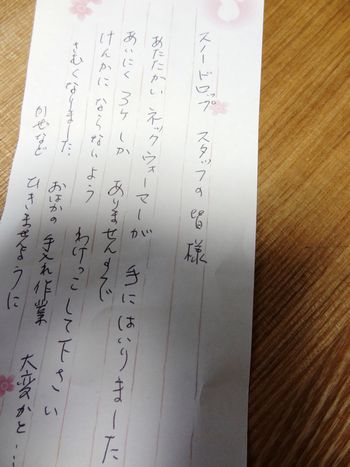 スノードロップ スタッフの皆様
あたたかい ネックウォーマーが 手にはいりました
あいにく 3ケ しか ありませんので
けんかに ならないよう わけっこして下さい
さむくなりました。 おはかの 手入れ作業 大変かと…
かぜなど ひきませんように